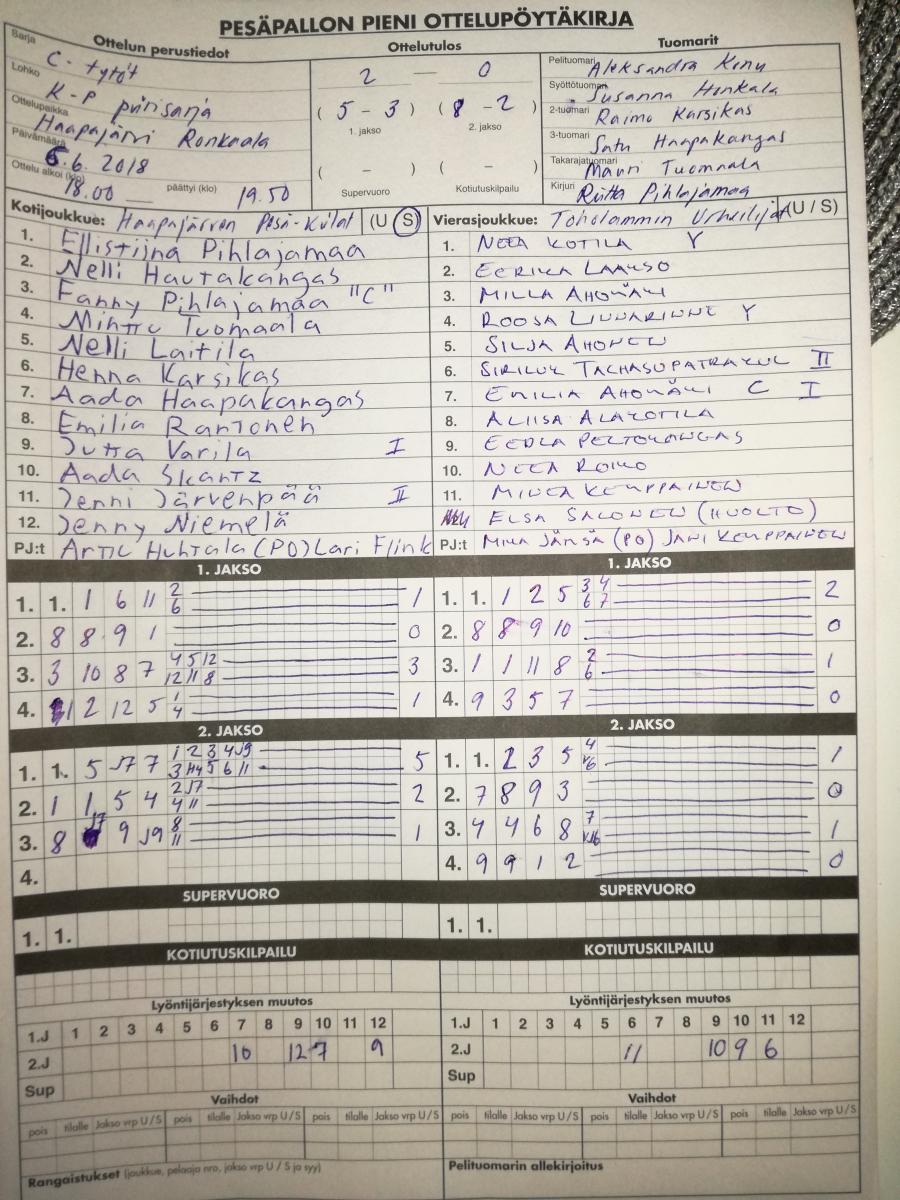 PESÄPALLON PIENI OTTELUPÖYTÄKIRJA
Ottelun perustiedot
Sarja C-tytöt
Lohko K-P piirisarja
Ottelupaikka Haapajärvi Ronkaala
Päivämäärä 6.6.2018
Ottelu alkoi (klo) 18.00 päättyi (klo) 19.50
Ottelutulos
2 — 0
(5 - 3) (8 - 2)
1. jakso 2. jakso
( - ) ( - )
Supervuoro Kotiutuskilpailu
Tuomarit
Pelituomari Aleksandra
Syöttötuomari Susanna Honkala
2-tuomari Raimo Karsikas
3-tuomari Satu Haapakangas
Takarajatuomari Mauri Tuomaala
Kirjuri Riitta Pihlajamaa
Kotijoukkue: Haapajärven Pesä-Kiilat (U S)
1. Ellistiina Pihlajamaa
2. Nelli Hautakangas
3. Fanny Pihlajamaa "C"
4. Minttu Tuomaala
5. Nelli Laitila
6. Henna Karsikas
7. Aada Haapakangas
8. Emilia Rantonen
9. Jutta Varila I
10. Aada Skantz
11. Jenni Järvenpää II
12. Jenny Niemelä
PJ:t Huhtala (PO) Lari Flink
Vierasjoukkue: Toholammin Urheilijat (U / S)
1. NEEA KOTILA Y
2. EERIKA LAAKSO
3. MILLA AHOMÄKI
4. ROOSA LINNARINNE Y
5. SILJA AHONEN
6. SIRILUK TACHASUPATRAKUL II
7. EMILIA AHOMÄKI C I
8. ALIISA ALAKOTILA
9. EEDLA PELTOKANGAS
10. NEEA ROIKO
11. MINEA KEMPPAINEN
ELSA SALONEN (HUOLTO)
PJ:t MIKA JÄMSÄ (PO) JANI KEMPPAINEN
1. JAKSO
1. 1. 1 6 11 2 6 1
2. 8 8 9 1 0
3. 3 10 8 7 4 5 12 12 11 8 3
4. 1 2 12 5 1 4 1
1. JAKSO
1. 1. 1 2 5 3 4 6 7 2
2. 8 8 9 10 0
3. 1 1 11 8 2 6 1
4. 9 3 5 7 0
2. JAKSO
1. 1. 5 J7 7 1 2 3 4 J9 3 H4 5 6 11 5
2. 1 1 5 4 2 J7 4 11 2
3. 8 J7 9 J9 8 11 1
4.
2. JAKSO
1. 1. 2 3 5 4 V6 1
2. 7 8 9 3 0
3. 4 4 6 8 7 1
4. 9 9 1 2 0
SUPERVUORO
1. 1.
SUPERVUORO
1. 1.
KOTIUTUSKILPAILU
KOTIUTUSKILPAILU
Lyöntijärjestyksen muutos
1.J 1 2 3 4 5 6 7 8 9 10 11 12
2.J 10 12 7 9
Sup
Lyöntijärjestyksen muutos
1.J 1 2 3 4 5 6 7 8 9 10 11 12
2.J 11 10 9 6
Sup
Vaihdot
pois tilalle Jakso vrp U / S pois tilalle Jakso vrp U / S pois tilalle Jakso vrp U / S
Vaihdot
pois tilalle Jakso vrp U / S pois tilalle Jakso vrp U / S pois tilalle Jakso vrp U / S
Rangaistukset (joukkue, pelaaja nro, jakso vrp U / S ja syy)
Pelituomarin allekirjoitus